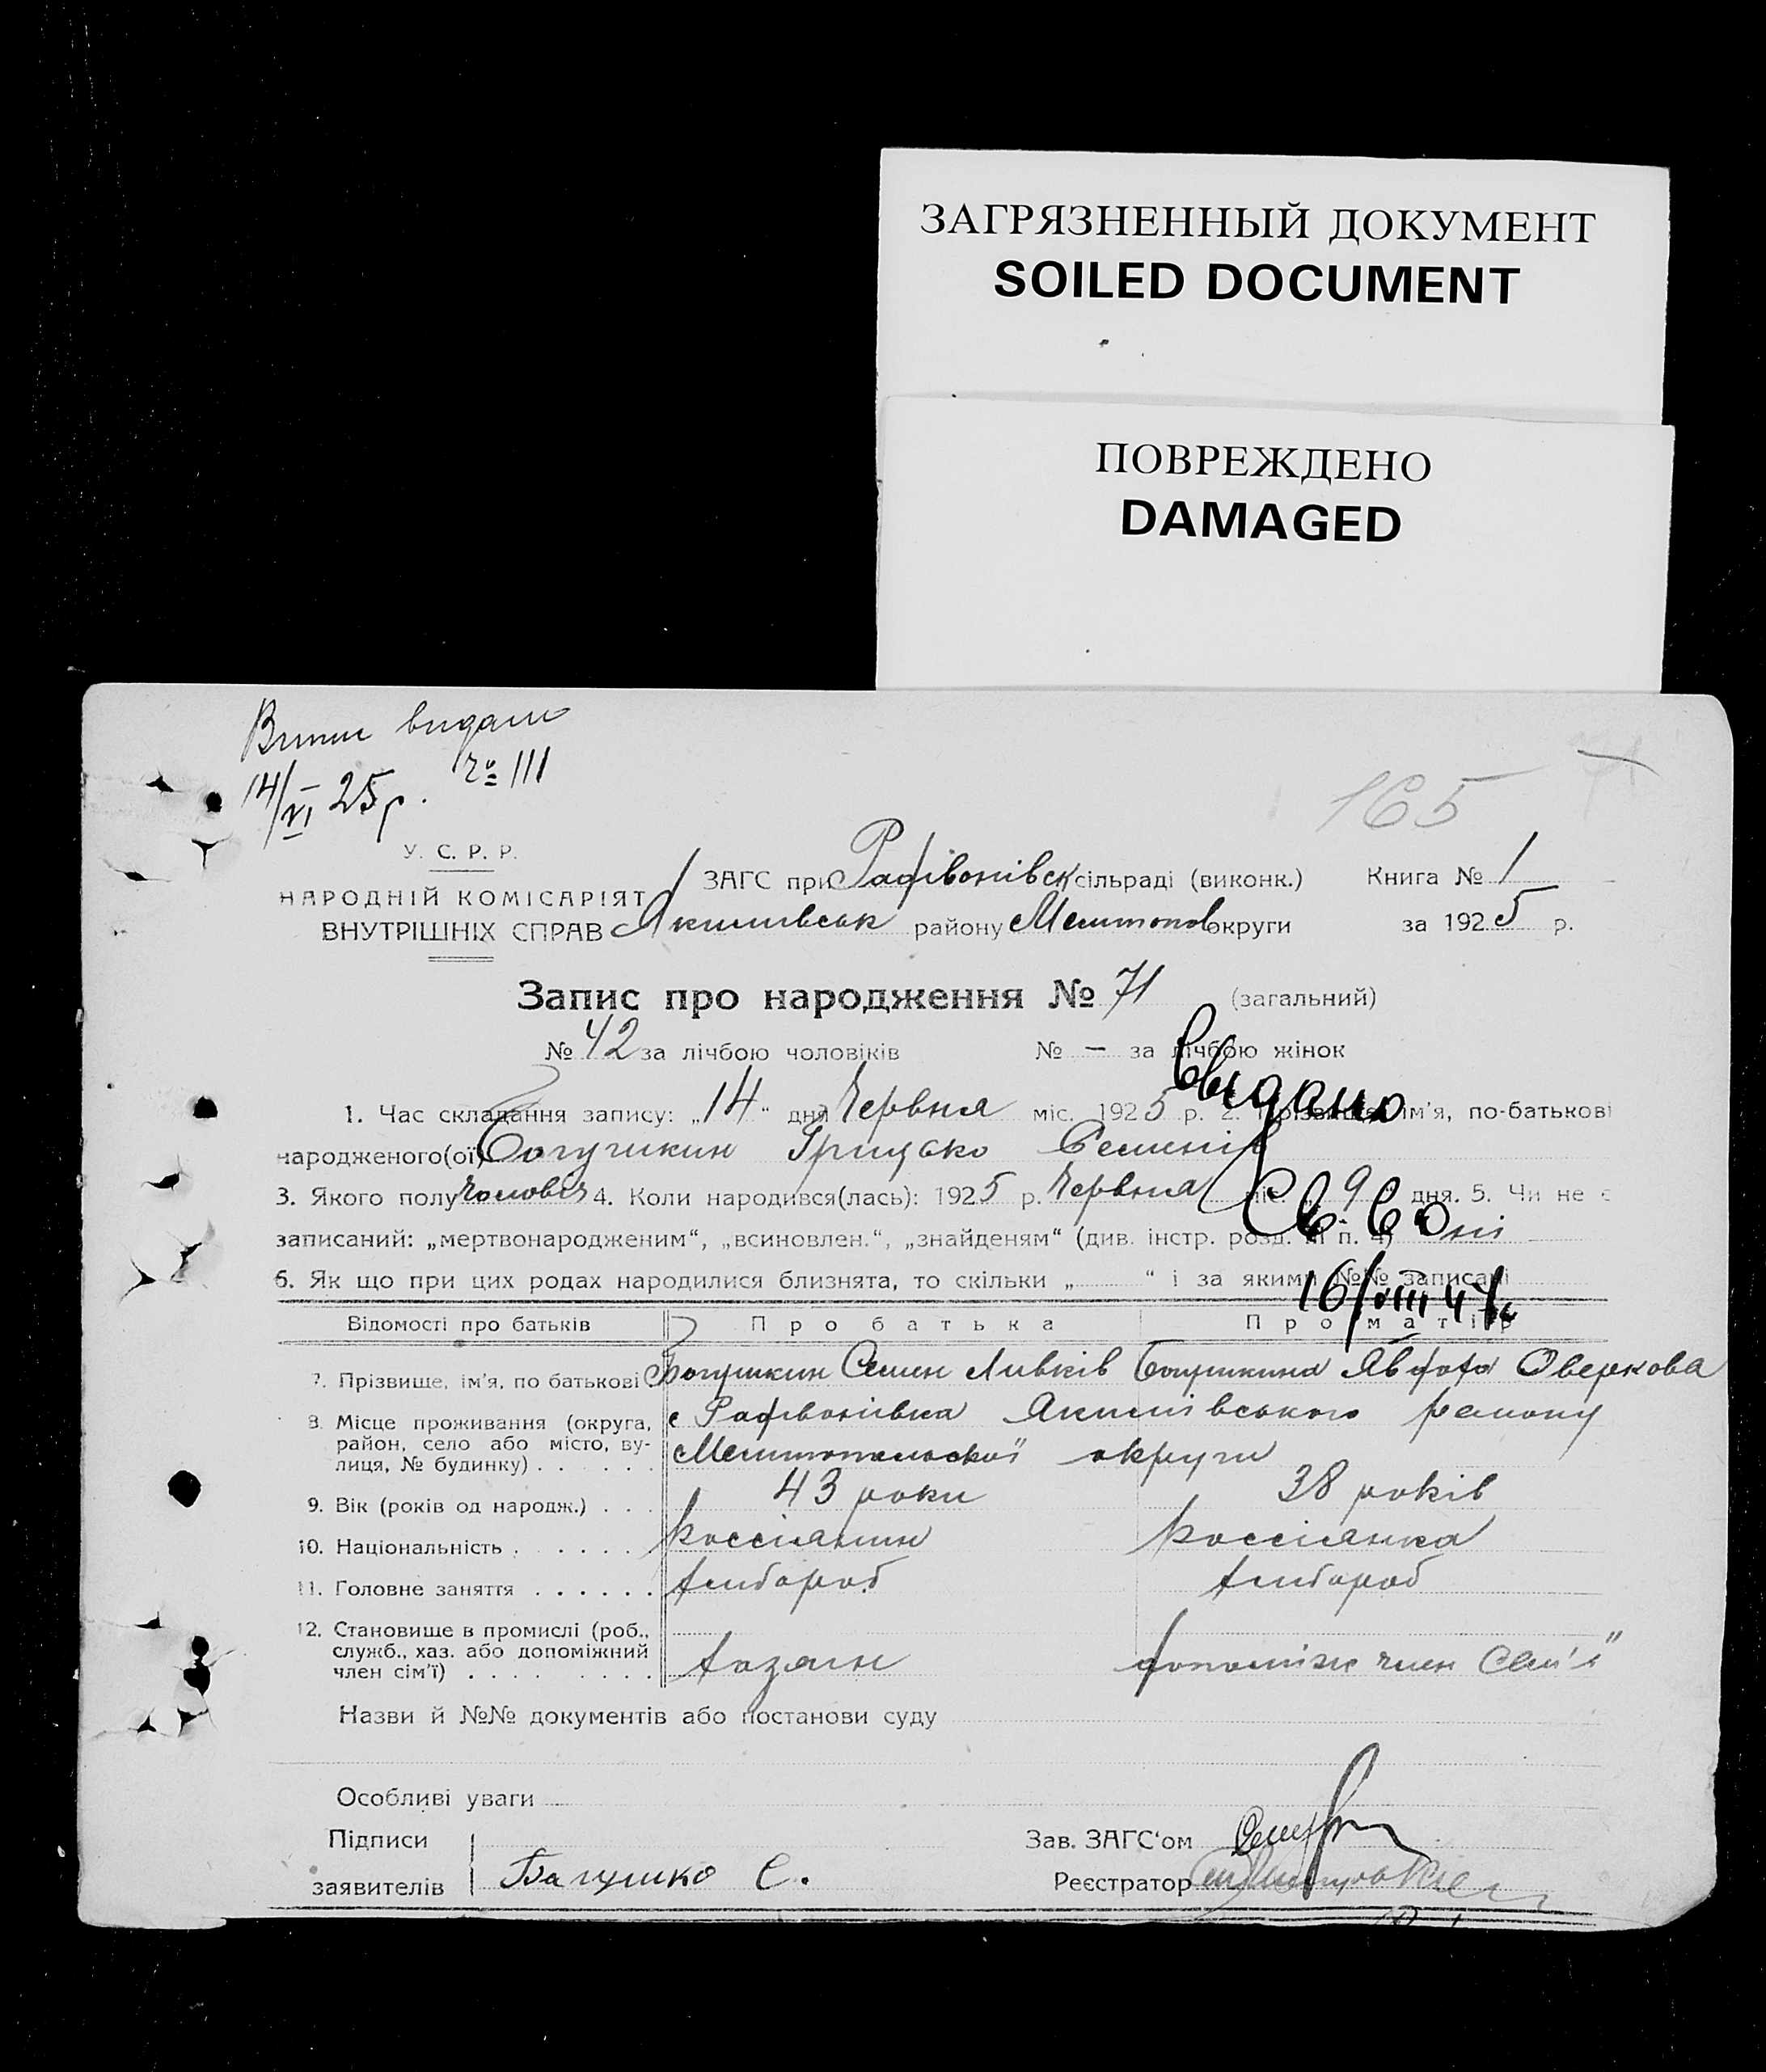 ЗАГРЯЗНЕННЫЙ ДОКУМЕНТ
SOILED DOCUMENT
ПОВРЕЖДЕНО
DAMAGED
видано
14/VI 25р. № 111
165
У. С. Р. Р.
НАРОДНІЙ КОМІСАРІЯТ
ВНУТРІШНІХ СПРАВ
ЗАГС при Радівонівськ сільраді (виконк.) Книга № 1
Якимівськ району Мелитопол округи за 1925 р.
Запис про народження № 71 (загальний)
№ 42 за лічбою чоловіків № — за лічбою жінок
1. Час складання запису: „14“ дня Червня міс. 1925 р. 2. Прізвище, ім'я, по-батькові
народженого(ої) Богушкин Грицько Семенів
3. Якого полу чоловіч 4. Коли народився(лась): 1925 р. Червня міс. 9 дня. 5. Чи не є
записаний: „мертвонародженим“, „всиновлен.“, „знайденям“ (див. інстр. розд. III п. 4) ні
6. Як що при цих родах народилися близнята, то скільки „ “ і за якими №№ записані
Ввидано
Св. В
16/VIII 47
Відомості про батьків Про батька Про матір
7. Прізвище, ім'я, по батькові Богушкин Семен Ливків Богушкина Явдоха Оверкова
8. Місце проживання (округа, район, село або місто, вулиця, № будинку) с Радівонівка Якимівського району
Мелитопольської округи
9. Вік (років од народж.) 43 роки 38 років
10. Національність Россіянин Россіянка
11. Головне заняття хлібороб хлібороб
12. Становище в промислі (роб., служб., хаз. або допоміжний член сім'ї) хазяїн допоміж член сем'ї
Назви й №№ документів або постанови суду
Особливі уваги
Підписи
заявителів Багушко С.
Зав. ЗАГС'ом
Реєстратор